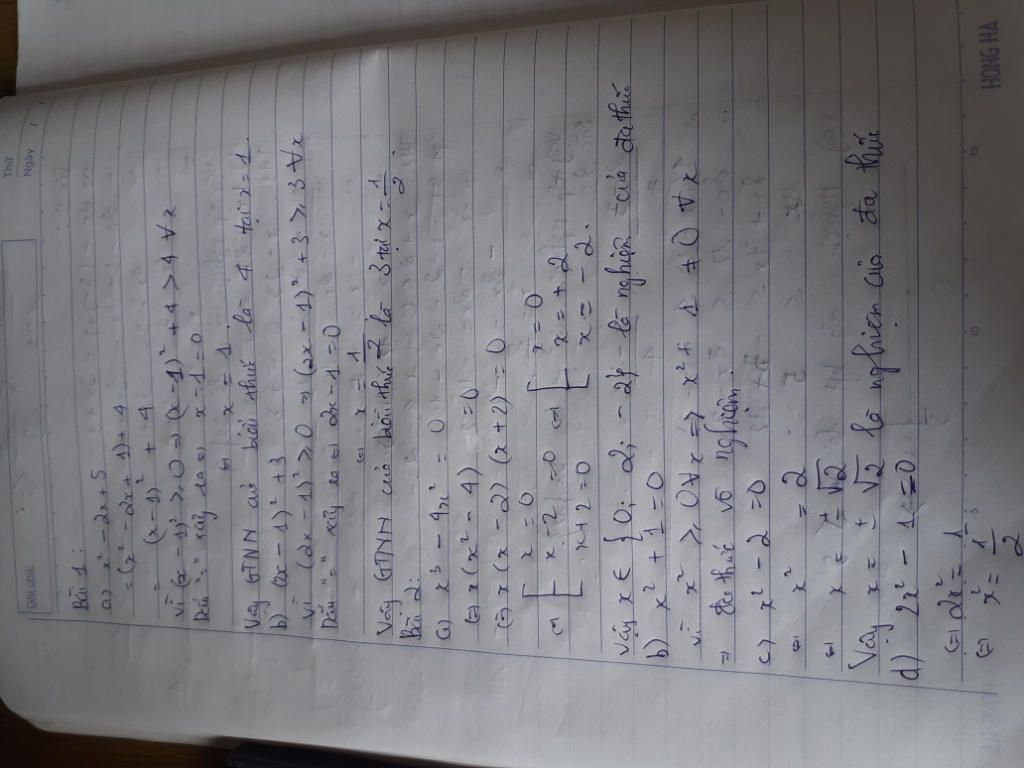 Thứ
Ngày
Ghi chú:
Bài 1:
a) x² - 2x + 5
= (x² - 2x + 1) + 4
(x - 1)² + 4
Vì (x - 1)² ≥ 0 => (x - 1)² + 4 ≥ 4 ∀x
Dấu "=" xảy ra <=> x - 1 = 0
<=> x = 1
Vậy GTNN của biểu thức là 4 tại x = 1.
b) (2x - 1)² + 3
Vì (2x - 1)² ≥ 0 => (2x - 1)² + 3 ≥ 3 ∀x
Dấu "=" xảy ra <=> 2x - 1 = 0
<=> x = 1/2
Vậy GTNN của biểu thức là 3 tại x = 1/2.
Bài 2:
a) x³ - 4x² = 0
<=> x(x² - 4) = 0
<=> x(x - 2)(x + 2) = 0
<=> [ x = 0 <=> [ x = 0
x - 2 = 0 x = +2
x + 2 = 0 x = -2.
Vậy x ∈ {0; 2; -2} là nghiệm của đa thức
b) x² + 1 = 0
Vì x² ≥ 0 ∀x => x² + 1 ≠ 0 ∀x
=> Đa thức vô nghiệm.
c) x² - 2 = 0
<=> x² = 2
<=> x = ±√2
Vậy x = ±√2 là nghiệm của đa thức
d) 2x² - 1 = 0.
<=> 2x² = 1
<=> x² = 1/2
5 10 15
HONG HA